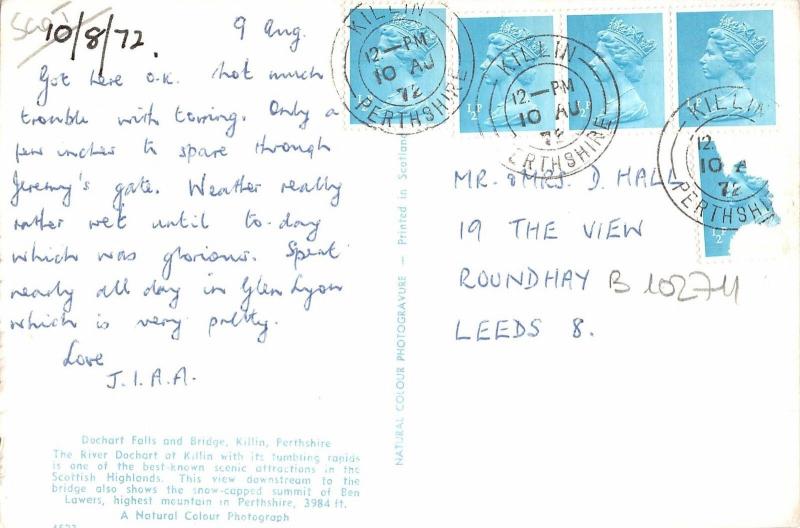 Scot
10/8/72.
9 Aug.
Got here o.k. Not much
trouble with towing. Only a
few inches to spare through
Jeremy's gate. Weather really
rather wet until to-day
which was glorious. Spent
nearly all day in Glen Lyon
which is very pretty.
Love
J.I.A.A.
Dochart Falls and Bridge, Killin, Perthshire
The River Dochart at Killin with its tumbling rapids
is one of the best-known scenic attractions in the
Scottish Highlands. This view downstream to the
bridge also shows the snow-capped summit of Ben
Lawers, highest mountain in Perthshire, 3984 ft.
A Natural Colour Photograph
NATURAL COLOUR PHOTOGRAVURE — Printed in Scotland
KILLIN
12.—PM
10 AU
72
PERTHSHIRE
KILLIN
12.—PM
10 AU
72
PERTHSHIRE
KILLIN
12.
10 A
72
PERTHSHI
½P
½P
½P
½P
½
MR. & MRS. D. HALL
19 THE VIEW
ROUNDHAY
LEEDS 8.
B 10274